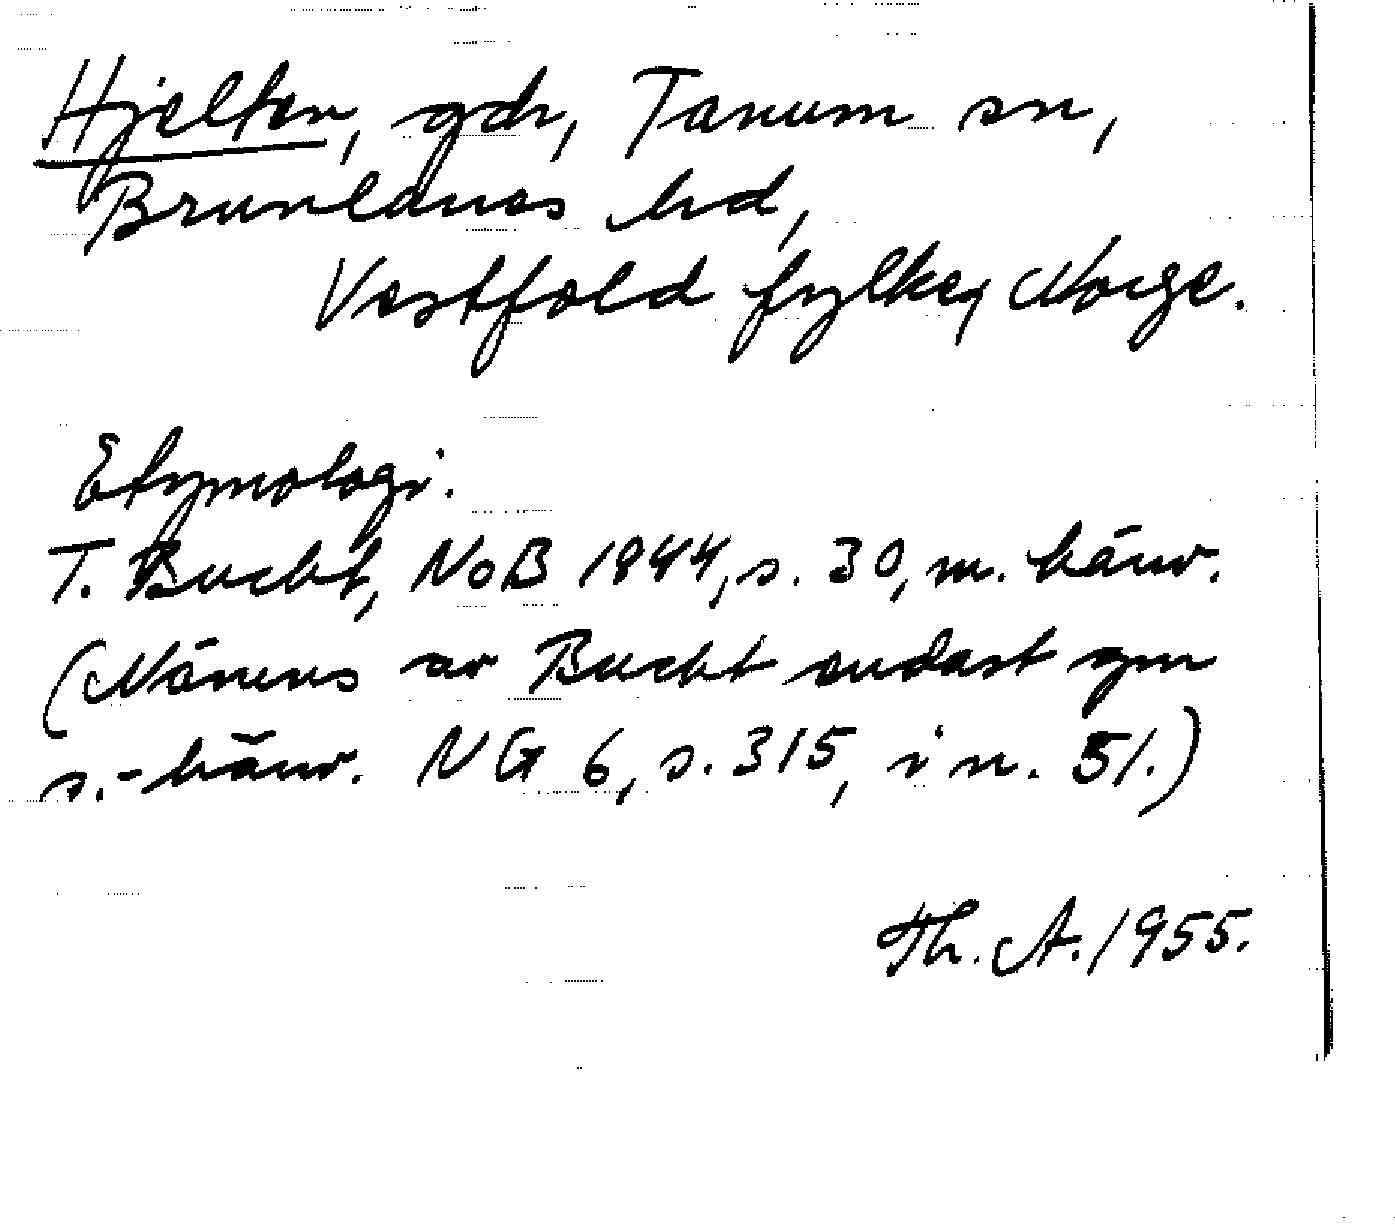 Hjelten, gdr, Tanum sn,
Brunlanes hd,
Vestfold fylke, Norge.
Etymologi.
T. Bucht, NoB 1944, s. 30, m. hänv.
(Nämns av Bucht endast gm
s.-hänv. NG 6, s. 315, i n. 51.)
Th. A. 1955.